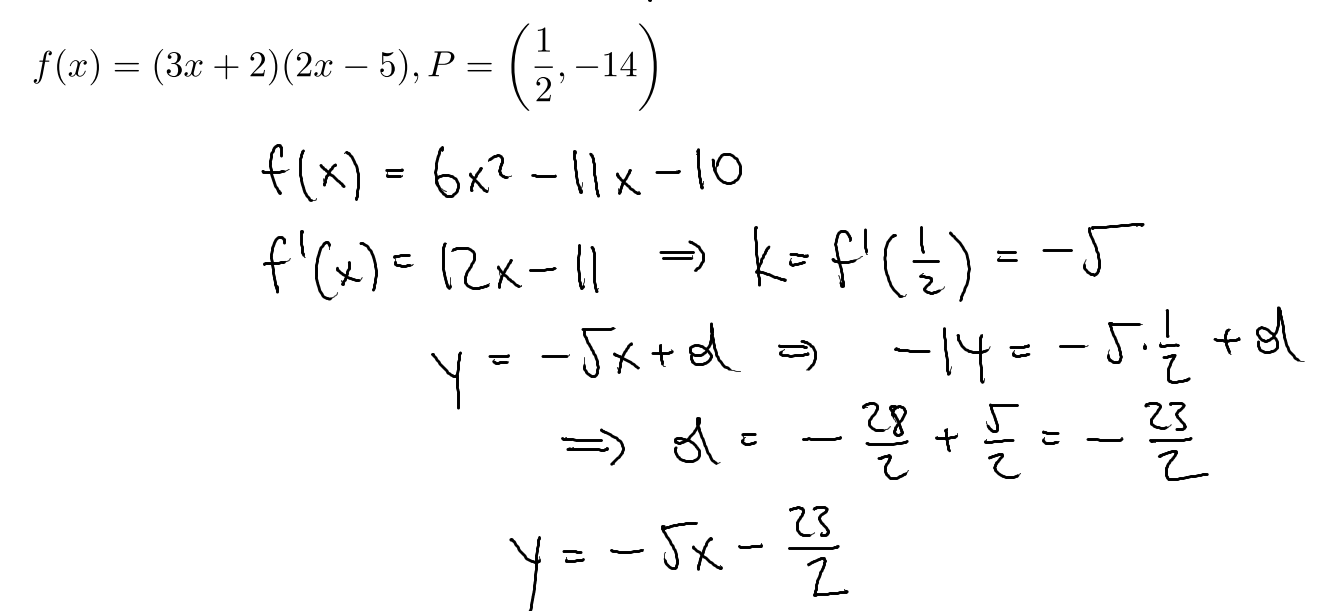 f(x) = (3x + 2)(2x − 5), P = (1/2, −14)
f(x) = 6x² − 11x − 10
f'(x) = 12x − 11 ⇒ k = f'(1/2) = −5
y = −5x + d ⇒ −14 = −5·1/2 + d
⇒ d = −28/2 + 5/2 = −23/2
y = −5x − 23/2